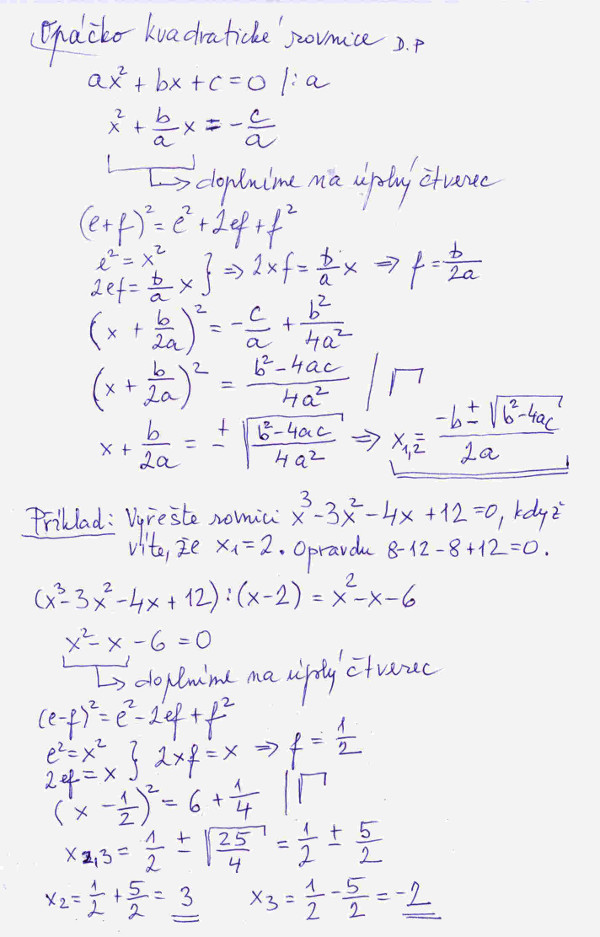 Opáčko kvadratické rovnice D.P
ax² + bx + c = 0 /: a
x² + b/a x = -c/a
doplníme na úplný čtverec
(e+f)² = e² + 2ef + f²
e² = x²
2ef = b/a x } ⇒ 2xf = b/a x ⇒ f = b/2a
(x + b/2a)² = -c/a + b²/4a²
(x + b/2a)² = (b²-4ac)/4a² /√
x + b/2a = ± √((b²-4ac)/4a²) ⇒ x₁,₂ = (-b ± √(b²-4ac))/2a
Příklad: Vyřešte rovnici x³-3x²-4x+12=0, když
víte, že x₁=2. Opravdu 8-12-8+12=0.
(x³-3x²-4x+12):(x-2) = x²-x-6
x²-x-6=0
doplníme na úplý čtverec
(e-f)² = e²-2ef+f²
e²=x²
2ef=x } 2xf=x ⇒ f = 1/2
(x - 1/2)² = 6 + 1/4 /√
x₂,₃ = 1/2 ± √(25/4) = 1/2 ± 5/2
x₂ = 1/2 + 5/2 = 3 x₃ = 1/2 - 5/2 = -2